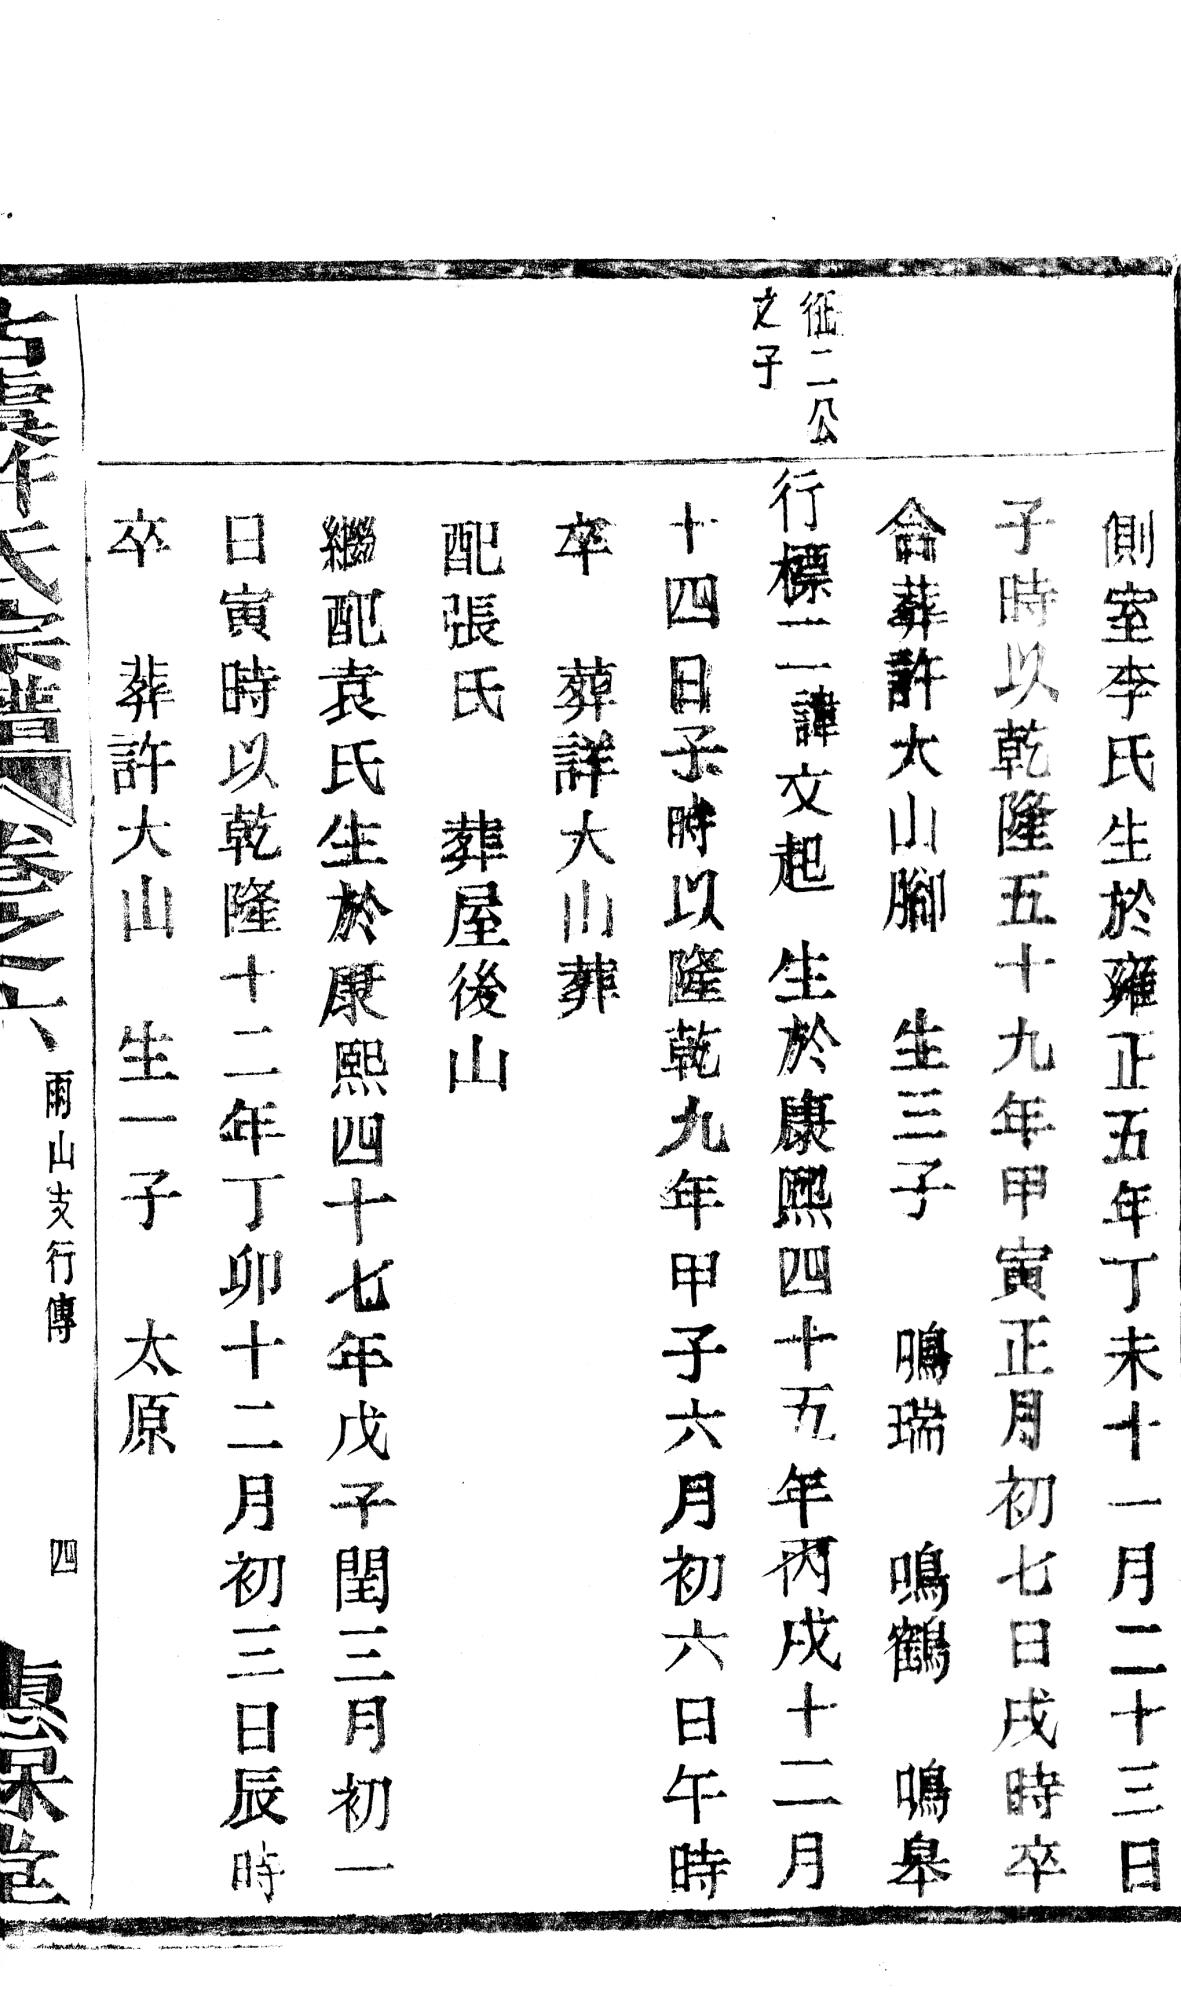 側室李氏生於雍正五年丁未十一月二十三日
子時以乾隆五十九年甲寅正月初七日戌時卒
合葬許大山腳　生三子　鳴瑞　鳴鶴　鳴皋
二公
之子
行標二一諱文起　生於康熙四十五年丙戌十二月
十四日子時以隆乾九年甲子六月初六日午時
卒　葬詳大山葬
配張氏　葬屋後山
繼配袁氏生於康熙四十七年戊子閏三月初一
日寅時以乾隆十二年丁卯十二月初三日辰時
卒　葬許大山　生一子　太原
氏宗譜　卷之六　雨山支行傳　四